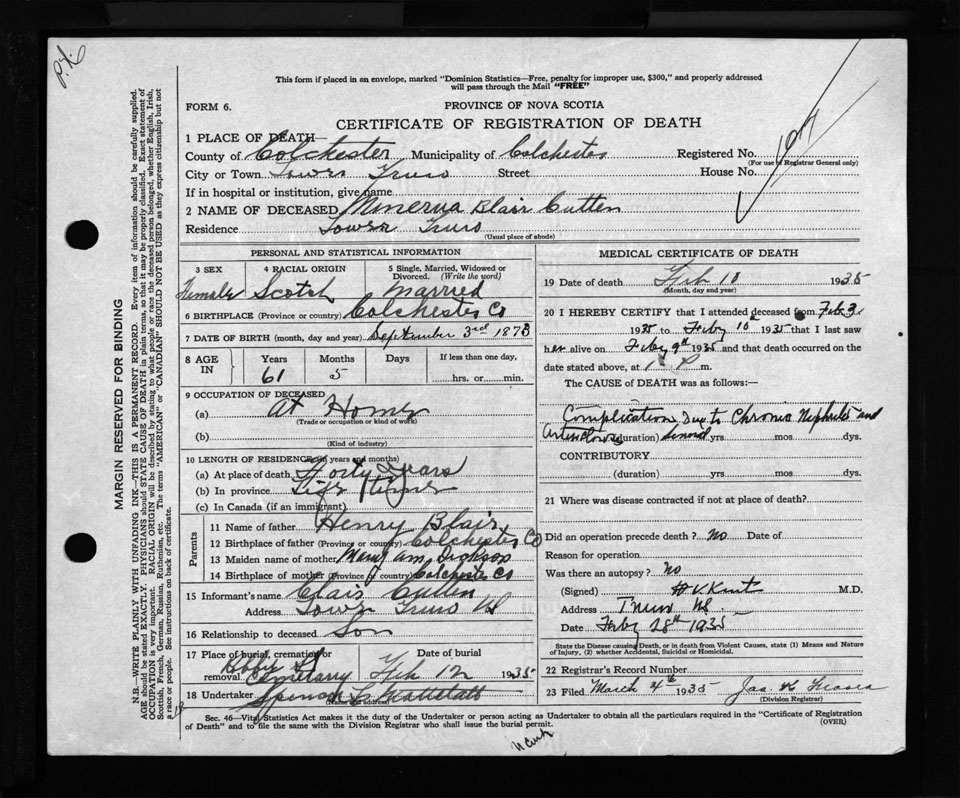 This form if placed in an envelope, marked "Dominion Statistics—Free, penalty for improper use, $300," and properly addressed
will pass through the Mail "FREE"
FORM 6.
PROVINCE OF NOVA SCOTIA
CERTIFICATE OF REGISTRATION OF DEATH
1 PLACE OF DEATH—
County of Colchester Municipality of Colchester Registered No.
(For use of Registrar General only)
City or Town Lower Truro Street House No.
If in hospital or institution, give name
2 NAME OF DECEASED Minerva Blair Cutten
Residence Lower Truro
(Usual place of abode)
PERSONAL AND STATISTICAL INFORMATION
3 SEX 4 RACIAL ORIGIN 5 Single, Married, Widowed or
Divorced. (Write the word)
Female Scotch Married
6 BIRTHPLACE (Province or country) Colchester Co
7 DATE OF BIRTH (month, day and year) September 3rd 1873
8 AGE IN Years Months Days If less than one day,
61 5 hrs. or min.
9 OCCUPATION OF DECEASED
(a) At Home
(Trade or occupation or kind of work)
(b)
(Kind of industry)
10 LENGTH OF RESIDENCE (in years and months)
(a) At place of death Forty Years
(b) In province Life Time
(c) In Canada (if an immigrant)
Parents
11 Name of father Henry Blair
12 Birthplace of father (Province or country) Colchester Co
13 Maiden name of mother Mary Ann Dickson
14 Birthplace of mother (Province or country) Colchester Co
15 Informant's name Clair Cutten
Address Lower Truro NS
16 Relationship to deceased Son
17 Place of burial, cremation or removal Date of burial
Cemetarry Feb 12 1935
18 Undertaker
(Name and address)
MEDICAL CERTIFICATE OF DEATH
19 Date of death Feb 10 1935
(Month, day and year)
20 I HEREBY CERTIFY that I attended deceased from Feb 3
1935 to Feby 10th 1935 that I last saw
her alive on Feby 9th 1935 and that death occurred on the
date stated above, at 1 P m.
The CAUSE of DEATH was as follows:
Complication Due to Chronic Nephritis and
(duration) several yrs. mos. dys.
CONTRIBUTORY
(duration) yrs. mos. dys.
21 Where was disease contracted if not at place of death?
Did an operation precede death? No Date of
Reason for operation
Was there an autopsy? No
(Signed) H V Kent M.D.
Address Truro NS.
Date Feby 28th 1935
State the Disease causing Death, or in death from Violent Causes, state (1) Means and Nature
of Injury, (2) whether Accidental, Suicidal or Homicidal.
22 Registrar's Record Number
23 Filed March 4th 1935 Jas. K Fraser
(Division Registrar)
Sec. 46—Vital Statistics Act makes it the duty of the Undertaker or person acting as Undertaker to obtain all the particulars required in the "Certificate of Registration
of Death" and to file the same with the Division Registrar who shall issue the burial permit.
(OVER)
MARGIN RESERVED FOR BINDING
N.B.—WRITE PLAINLY WITH UNFADING INK—THIS IS A PERMANENT RECORD. Every item of information should be carefully supplied.
AGE should be stated EXACTLY. PHYSICIANS should STATE CAUSE OF DEATH in plain terms, so that it may be properly classified. Exact statement of
OCCUPATION is very important. RACIAL ORIGIN will be described by stating to what people or race the deceased person belonged, whether English, Irish,
Scottish, French, German, Russian, Ruthenian, etc. The terms "AMERICAN" or "CANADIAN" SHOULD NOT BE USED as they express citizenship but not
a race or people. See instructions on back of certificate.